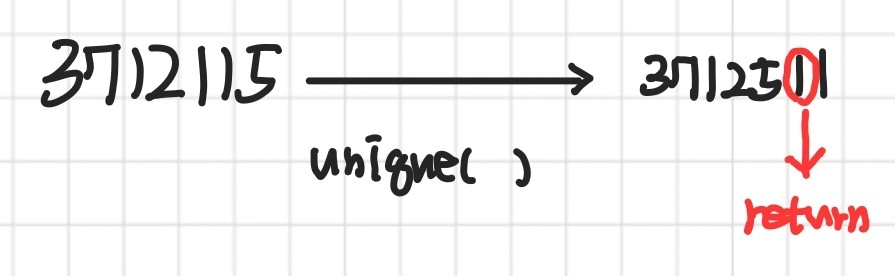 3712115
3712511
unique( )
return